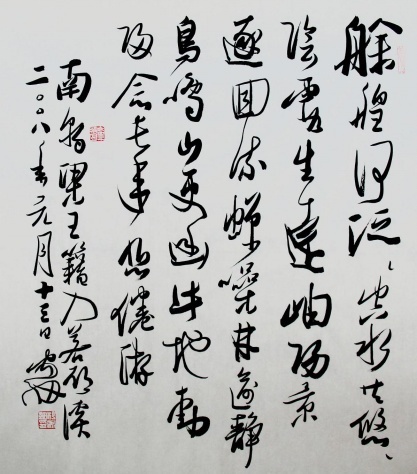 艅艎何泛〻空水共悠〻
陰霞生遠岫陽景
逐回流蟬噪林逾靜
鳥鳴山更幽此地動
歸念長年悲倦遊
南朝梁王籍入若耶溪
二〇〇八年元月十三日